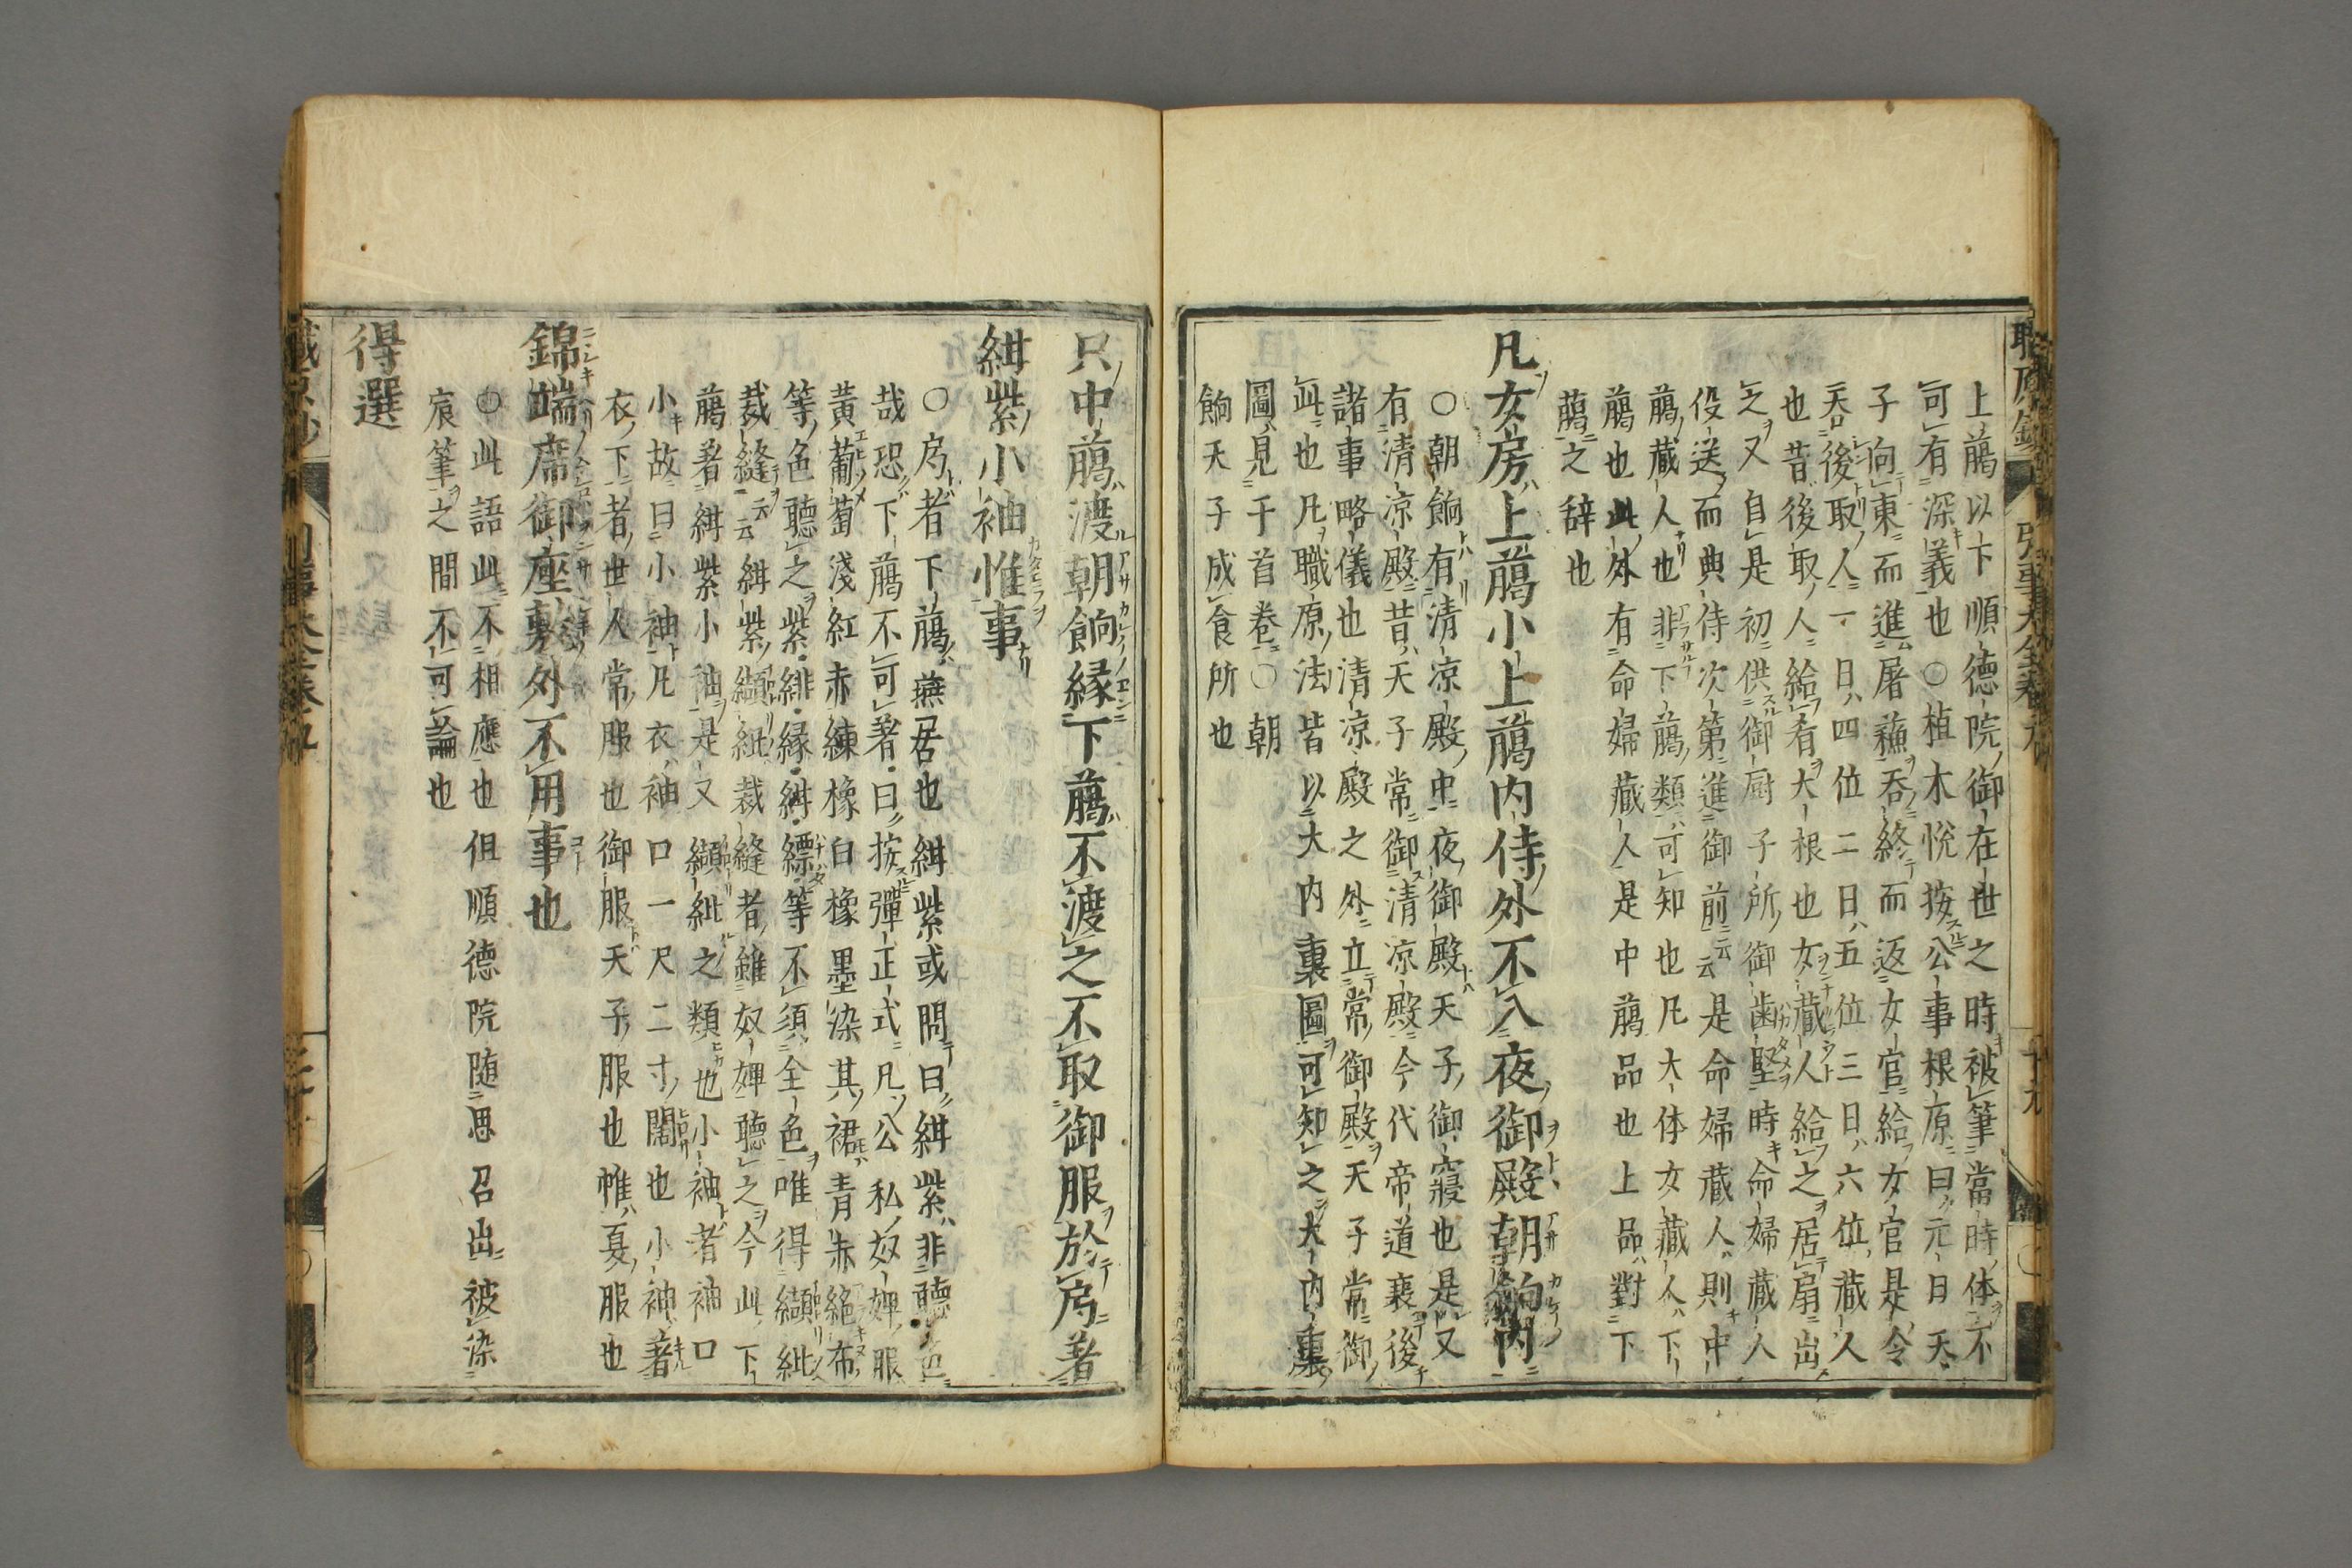 上﨟以下順德院御在世之時被筆當時体不
可有深義也○植木悅按公事根原曰元日天
子向東而進屠蘓呑終而返女官給女官是令
呑後取人一日四位二日五位三日六位藏人
也昔後取人給肴大根也女藏人給之居扇出
之又自是初供御厨子所御歯堅時命婦藏人
役送而典侍次第進御前云云是命婦藏人則中
﨟藏人也非下﨟類可知也凡大体女藏人下
﨟也此外有命婦藏人是中﨟品也上品對下
﨟之辞也
凡女房上﨟小上﨟内侍外不入夜御殿朝餉内
○朝餉有清凉殿中夜御殿天子御寢也是又
有清凉殿昔天子常御清凉殿今代帝道衰後
諸事略儀也清凉殿之外立常御殿天子常御
此也凡職原法皆以大内裏圖可知之大内裏
圖見于首卷○朝
餉天子成食所也
只中﨟渡朝餉縁下﨟不渡之不取御服於房著
紺紫小袖惟事
○房者下﨟燕居也紺紫或問曰紺紫非聴色
哉恐下﨟不可著曰按彈正式凡公私奴婢服
黃葡萄淺紅赤練橡白橡墨染其裙青赤絁布
等色聴之紫緋縁紺縹等不須全色唯得纈紕
裁縫云云紺紫纈紕裁縫者雖奴婢聴之今此下
﨟著紺紫小袖是又纈紕之類也小袖者袖口
小故曰小袖凡衣袖口一尺二寸濶也小袖著
衣下者世人常服也御服天子服也帷夏服也
錦端席御座剪外不用事也
○此語此不相應也但順德院随思召出被染
宸筆之間不可論也
得選